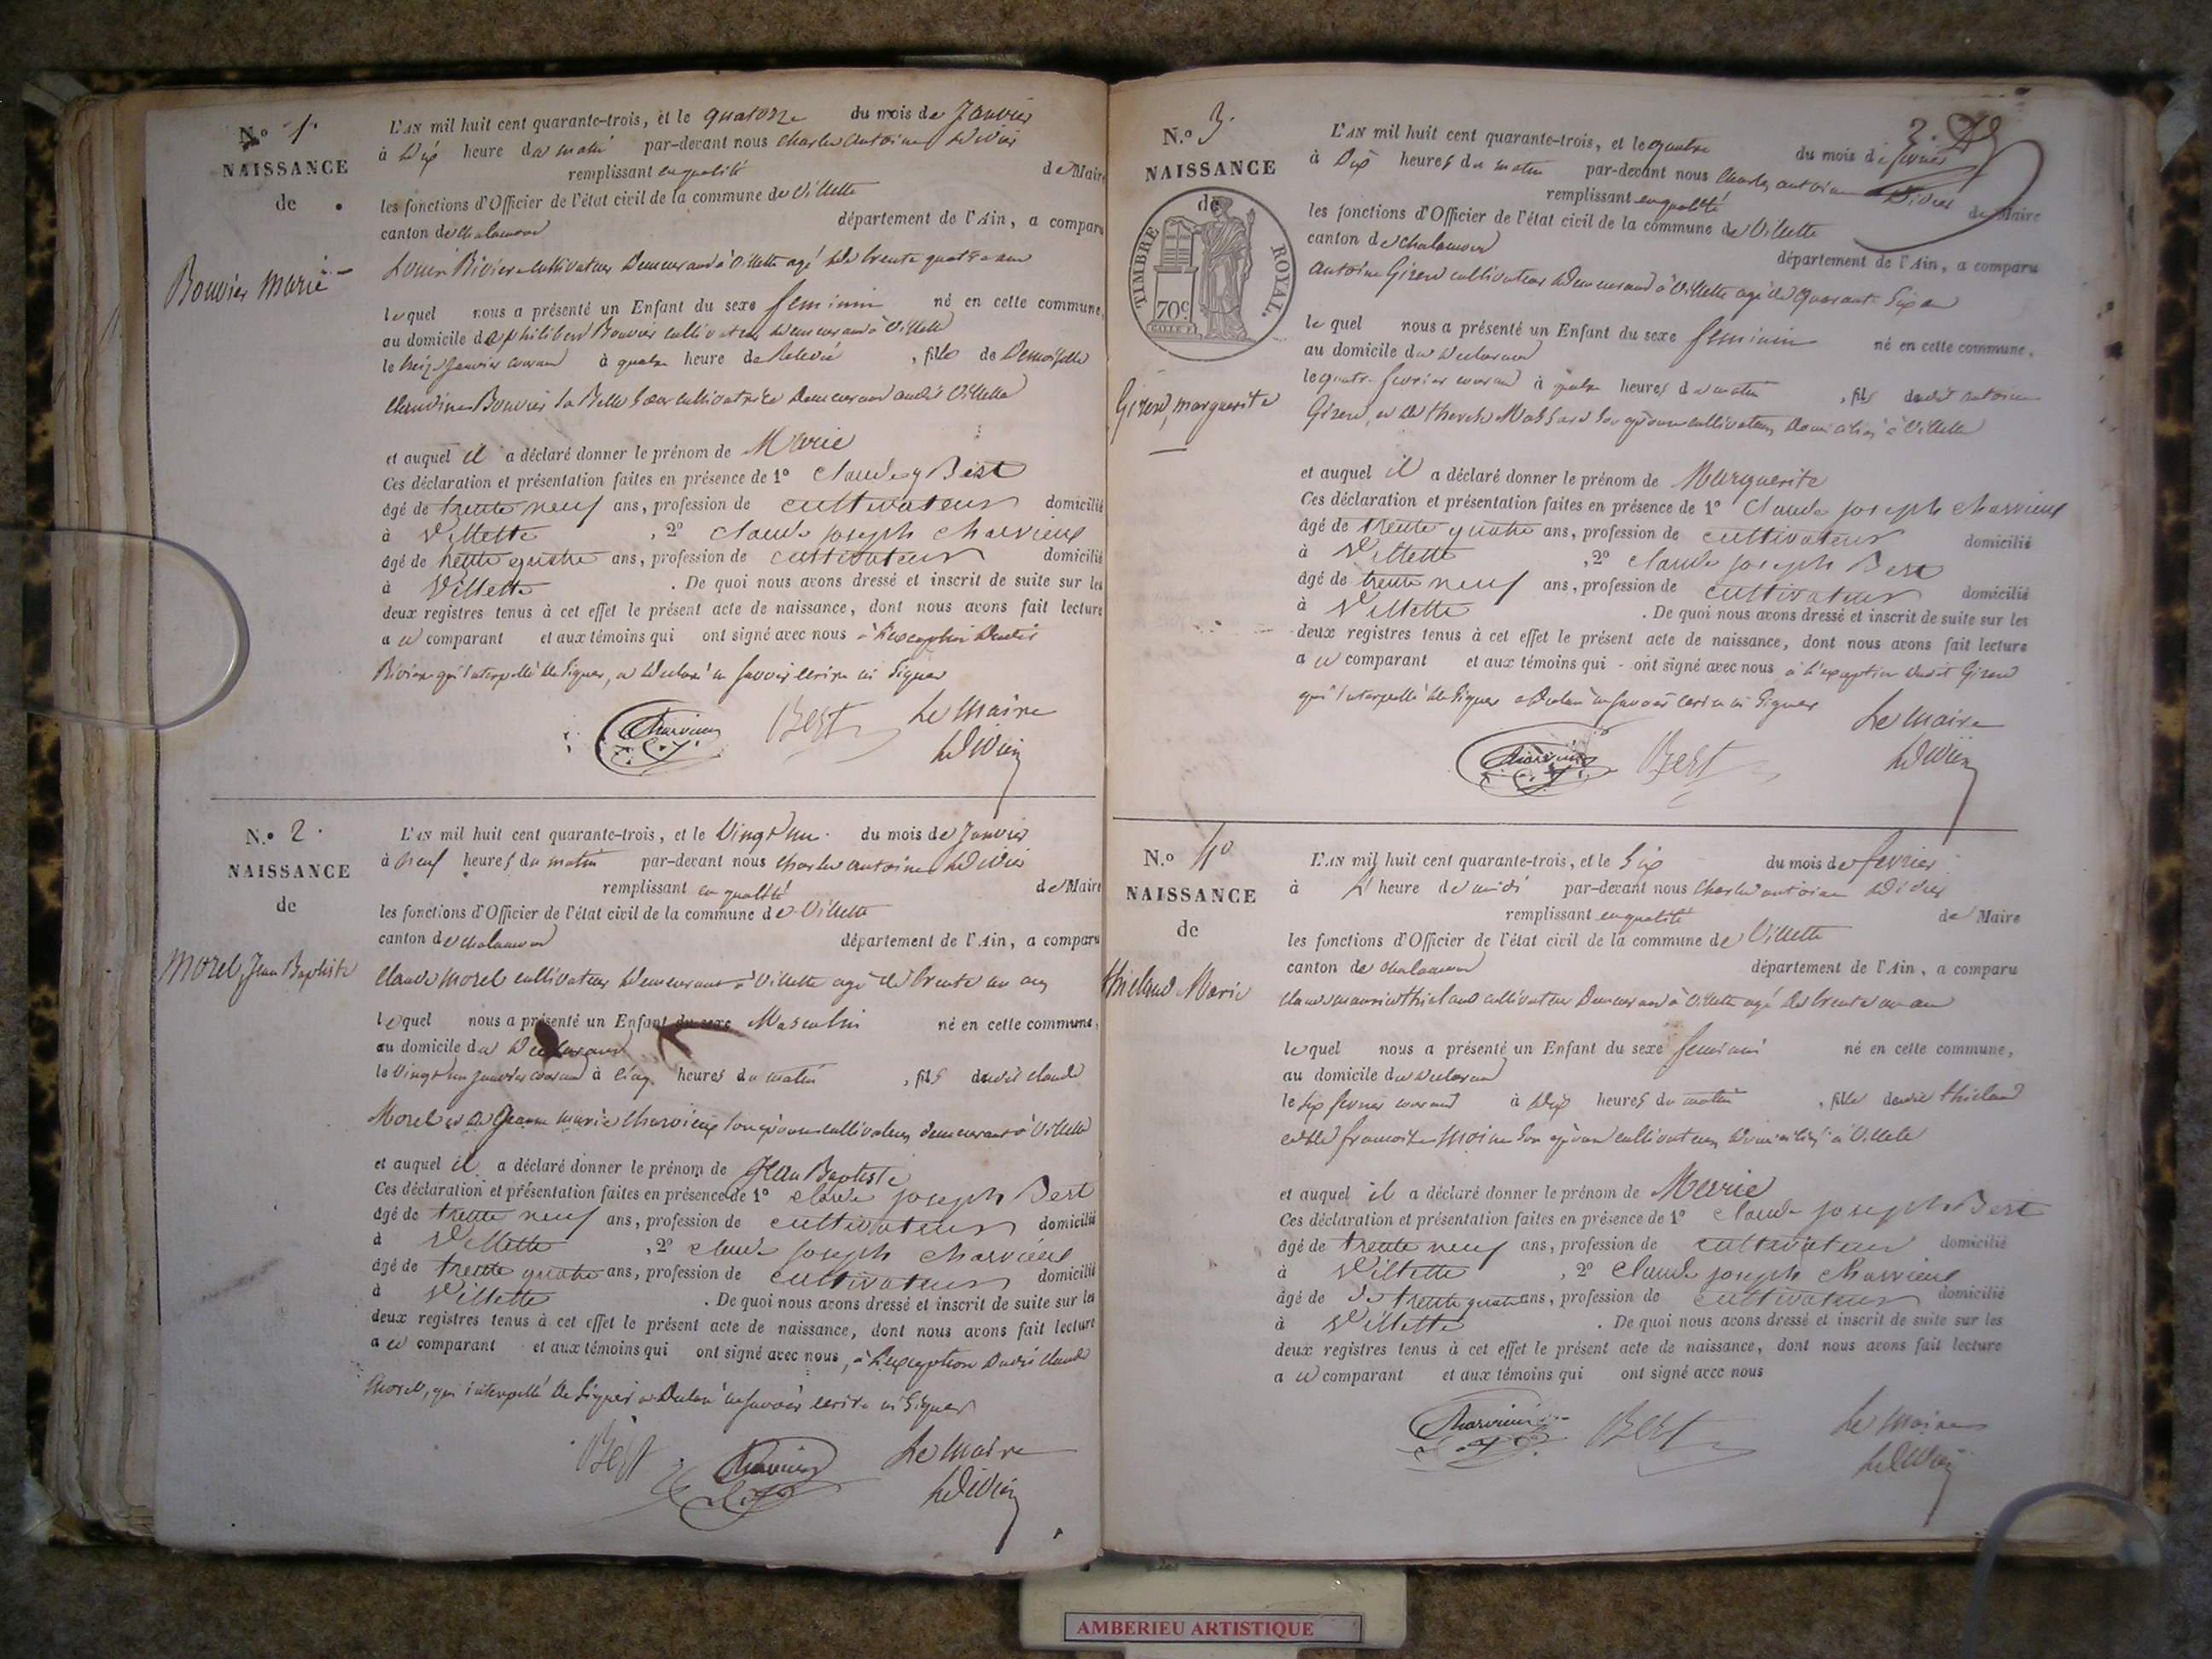 N.o 1.
NAISSANCE
de
Bouvier Marie
L'AN mil huit cent quarante-trois, et le quatorze du mois de Janvier
à Dix heure du matin par-devant nous Charles antoine Dedivier
remplissant en qualité de Maire
les fonctions d'Officier de l'état civil de la commune de Villette
canton de chalamond département de l'Ain, a comparu
Louis Riviere cultivateur Demeurand à Villette agé de trente quatre ans
lequel nous a présenté un Enfant du sexe feminin né en cette commune,
au domicile de philibert Bouvier cultivateur demeurand à Villette
le treize janvier courand à quatre heure de Relevée, fille de Demoiselle
Claudine Bouvier sa Belle Sœur cultivatrice Demeurand audit Villette
et auquel il a déclaré donner le prénom de Marie
Ces déclaration et présentation faites en présence de 1º Claude j Best
âgé de trente neuf ans, profession de cultivateur domicilié
à Villette, 2º claude joseph charvieux
âgé de trente quatre ans, profession de cultivateur domicilié
à Villette. De quoi nous avons dressé et inscrit de suite sur les
deux registres tenus à cet effet le présent acte de naissance, dont nous avons fait lecture
a ce comparant et aux témoins qui ont signé avec nous à l'exception dudit
Riviere qui interpellé de signer, a declaré ne savoir ecrire ni signer
Charvieux Best Le Maire
N.o 2.
NAISSANCE
de
Morel, Jean Baptiste
L'AN mil huit cent quarante-trois, et le vingt un du mois de Janvier
à neuf heures du matin par-devant nous Charles antoine Dedivier
remplissant en qualité de Maire
les fonctions d'Officier de l'état civil de la commune de Villette
canton de chalamond département de l'Ain, a comparu
Claude Morel cultivateur demeurant à Villette agé de trente un ans
lequel nous a présenté un Enfant du sexe Masculin né en cette commune,
au domicile du declarand
le vingt un janvier courand à cinq heures du matin, fils dudit claude
Morel et de Jeanne marie charvieux son epouse cultivateurs demeurant à Villette
et auquel il a déclaré donner le prénom de Jean Baptiste
Ces déclaration et présentation faites en présence de 1º claude joseph Best
âgé de trente neuf ans, profession de cultivateur domicilié
à Villette, 2º claude joseph charvieux
âgé de trente quatre ans, profession de cultivateur domicilié
à Villette. De quoi nous avons dressé et inscrit de suite sur les
deux registres tenus à cet effet le présent acte de naissance, dont nous avons fait lecture
a ce comparant et aux témoins qui ont signé avec nous, à l'exception dudit claude
Morel, qui interpellé de signer a declaré ne savoir ecrire ni signer
Best Charvieux Le Maire
2.
N.o 3.
NAISSANCE
de
TIMBRE ROYAL.
70c.
Girerd, marguerite
L'AN mil huit cent quarante-trois, et le quatre du mois de fevrier
à Dix heures du matin par-devant nous Charles antoine
remplissant en qualité de Maire
les fonctions d'Officier de l'état civil de la commune de Villette
canton de chalamond département de l'Ain, a comparu
antoine Girerd cultivateur demeurand à Villette agé de quarante six an
le quel nous a présenté un Enfant du sexe feminin né en cette commune,
au domicile du declarand
le quatre fevrier courand à quatre heures du matin, fils dudit antoine
Girerd, et de son epouse cultivateurs domiciliés à Villette
et auquel il a déclaré donner le prénom de Marguerite
Ces déclaration et présentation faites en présence de 1º Claude joseph charvieux
âgé de trente quatre ans, profession de cultivateur domicilié
à Villette, 2º claude joseph Best
âgé de trente neuf ans, profession de cultivateur domicilié
à Villette. De quoi nous avons dressé et inscrit de suite sur les
deux registres tenus à cet effet le présent acte de naissance, dont nous avons fait lecture
a ce comparant et aux témoins qui - ont signé avec nous à l'exception dudit Girerd
qui interpellé de signer a declaré ne savoir ecrire ni signer
Charvieux Best Le Maire
N.o 4º
NAISSANCE
de
thieland Marie
L'AN mil huit cent quarante-trois, et le six du mois de fevrier
à heure de midi par-devant nous Charles antoine Dedivier
remplissant en qualité de Maire
les fonctions d'Officier de l'état civil de la commune de Villette
canton de chalamond département de l'Ain, a comparu
claude maurice thieland cultivateur demeurand à Villette agé de trente un an
lequel nous a présenté un Enfant du sexe feminin né en cette commune,
au domicile du declarand
le six fevrier courand à Dix heures du matin, fille dudit thieland
et de francoise Moine son epouse cultivateurs domiciliés à Villette
et auquel il a déclaré donner le prénom de Marie
Ces déclaration et présentation faites en présence de 1º claude joseph Best
âgé de trente neuf ans, profession de cultivateur domicilié
à Villette, 2º Claude joseph charvieux
âgé de de trente quatre ans, profession de cultivateur domicilié
à Villette. De quoi nous avons dressé et inscrit de suite sur les
deux registres tenus à cet effet le présent acte de naissance, dont nous avons fait lecture
a ce comparant et aux témoins qui ont signé avec nous
Charvieux Best Le Maire
AMBERIEU ARTISTIQUE